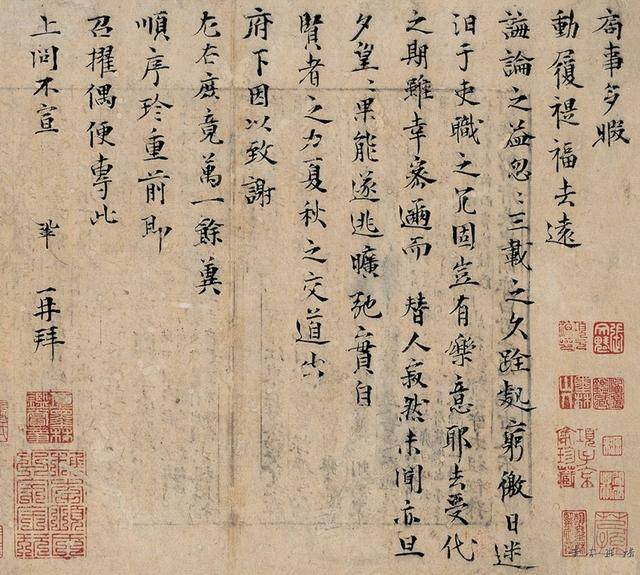 局事多暇
動履禔福去遠
誨論之益忽〻三載之久跧處窮徼日迷
汩于吏職之冗固豈有樂意耶去受代
之期雖幸密邇而 替人寂然未聞亦旦
夕望〻果能遂逃曠弛實自
賢者之力夏秋之交道出
府下因以致謝
左右庶竟萬一餘冀
順序珍重前即
召擢偶便專此
上問不宣 鞏 再拜
項子京家珍藏